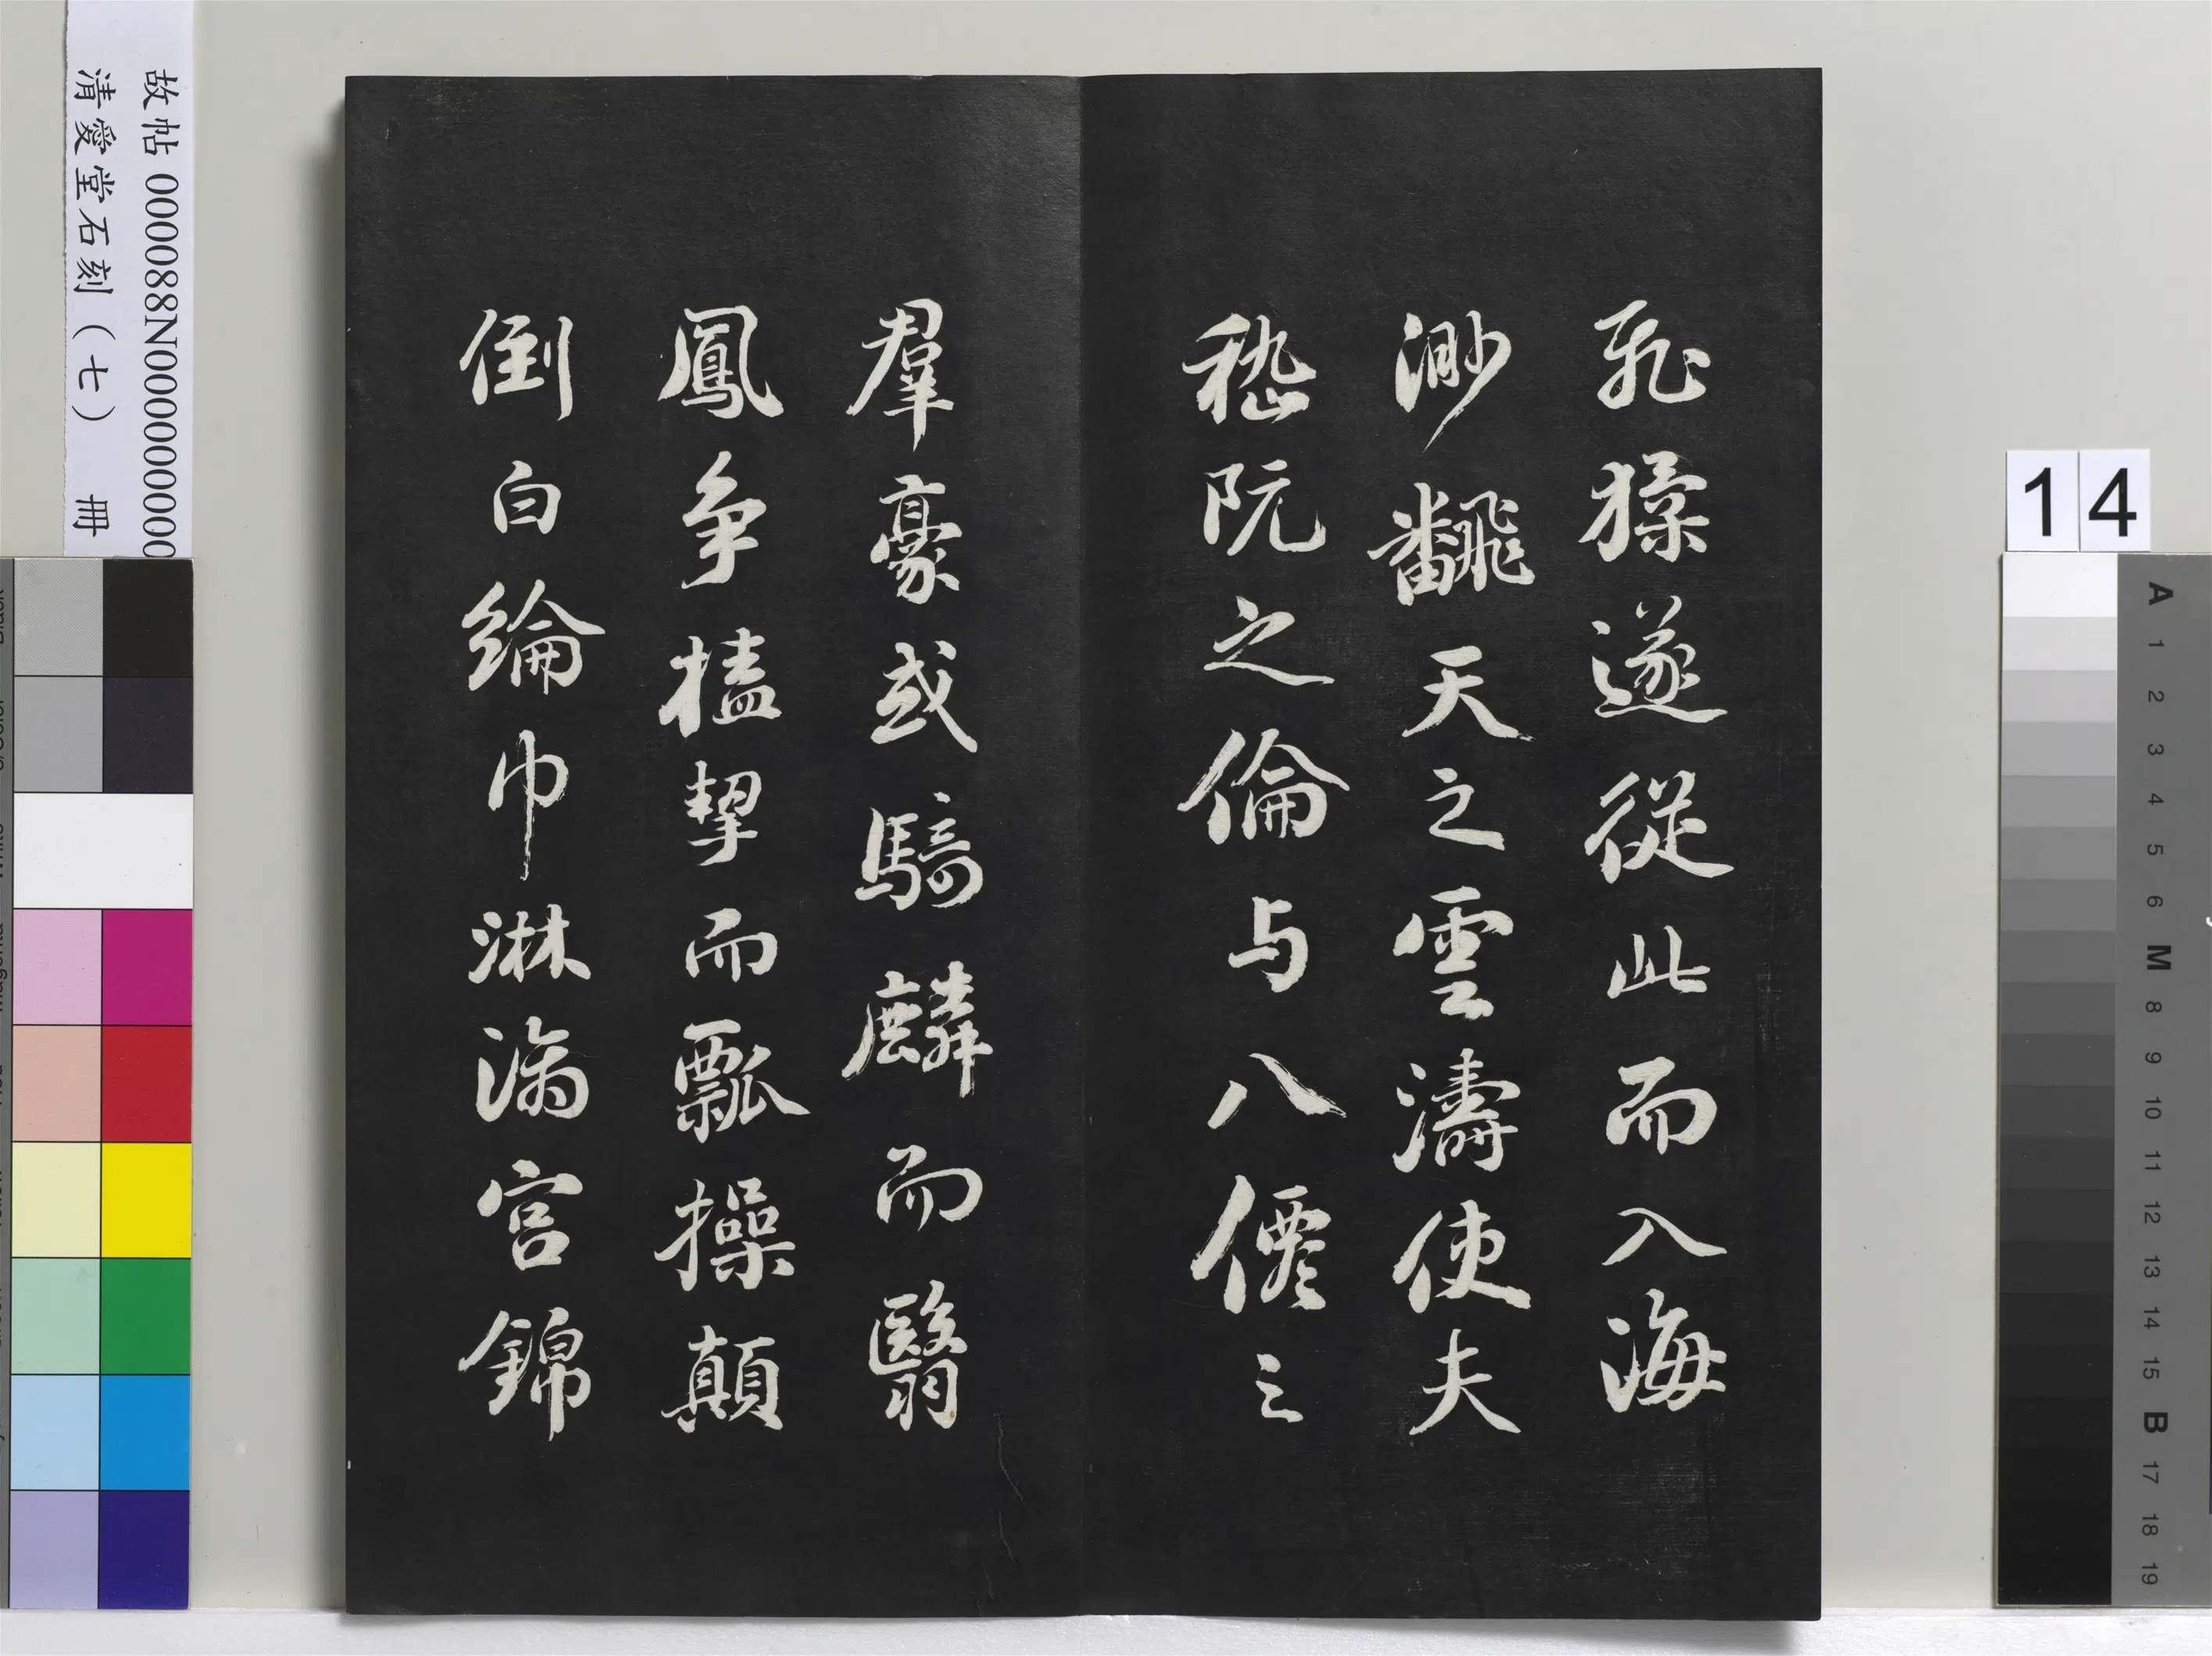 飛猱遂從此而入海
渺飜天之雲濤使夫
嵇阮之倫与八僊之
羣豪或騎麟而翳
鳳爭榼挈而瓢操顛
倒白綸巾淋漓宮錦
故帖 000088N000000000
清愛堂石刻(七) 冊
14
A
1
2
3
4
5
6
M
8
9
10
11
12
13
14
15
B
17
18
19